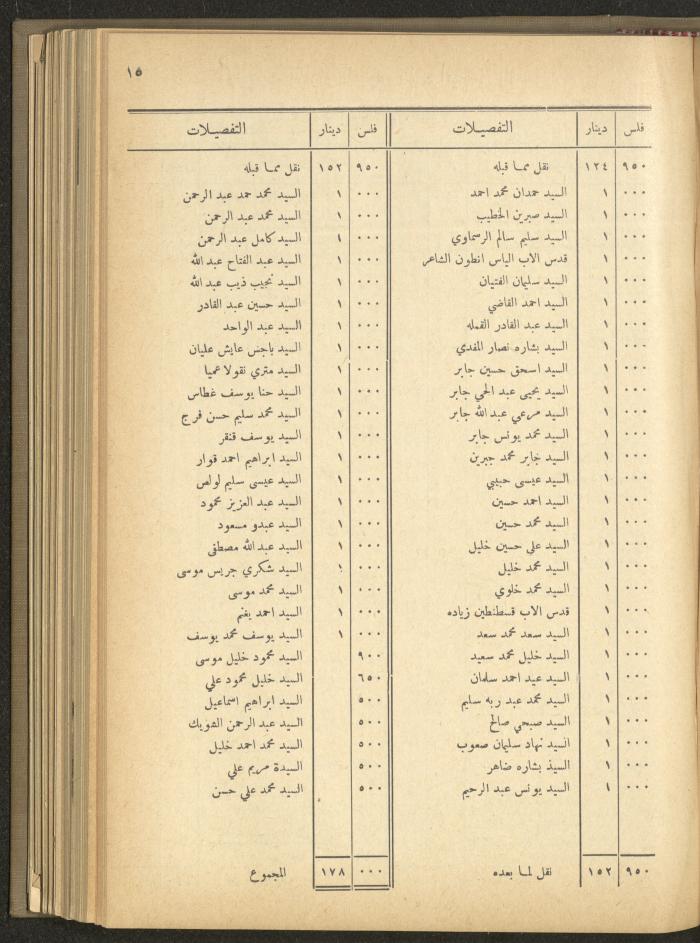 ١٥
فلس دينار التفصيلات
٩٥٠ ١٢٤ نقل مما قبله
٠٠٠ ١ السيد حمدان محمد احمد
٠٠٠ ١ السيد صبرين الخطيب
٠٠٠ ١ السيد سليم سالم الرسماوي
٠٠٠ ١ قدس الاب الياس انطون الشاعر
٠٠٠ ١ السيد سليمان الفتيان
٠٠٠ ١ السيد احمد القاضي
٠٠٠ ١ السيد عبد القادر القمله
٠٠٠ ١ السيد بشاره نصار المفدي
٠٠٠ ١ السيد اسحق حسين جابر
٠٠٠ ١ السيد يحيى عبد الحي جابر
٠٠٠ ١ السيد مرعي عبد الله جابر
٠٠٠ ١ السيد محمد يونس جابر
٠٠٠ ١ السيد جابر محمد جبرين
٠٠٠ ١ السيد عيسى حبيبي
٠٠٠ ١ السيد احمد حسين
٠٠٠ ١ السيد محمد حسين
٠٠٠ ١ السيد علي حسين خليل
٠٠٠ ١ السيد محمد خليل
٠٠٠ ١ السيد محمد خلوي
٠٠٠ ١ قدس الاب قسطنطين زياده
٠٠٠ ١ السيد سعد محمد سعد
٠٠٠ ١ السيد خليل محمد سعيد
٠٠٠ ١ السيد عيد احمد سلمان
٠٠٠ ١ السيد محمد عبد ربه سليم
٠٠٠ ١ السيد صبحي صالح
٠٠٠ ١ السيد نهاد سليمان صعوب
٠٠٠ ١ السيد بشاره ضاهر
٠٠٠ ١ السيد يونس عبد الرحيم
٩٥٠ ١٥٢ نقل لما بعده
فلس دينار التفصيلات
٩٥٠ ١٥٢ نقل مما قبله
٠٠٠ ١ السيد محمد حمد عبد الرحمن
٠٠٠ ١ السيد محمد عبد الرحمن
٠٠٠ ١ السيد كامل عبد الرحمن
٠٠٠ ١ السيد عبد الفتاح عبد الله
٠٠٠ ١ السيد نجيب ذيب عبد الله
٠٠٠ ١ السيد حسين عبد القادر
٠٠٠ ١ السيد عبد الواحد
٠٠٠ ١ السيد باجس عايش عليان
٠٠٠ ١ السيد متري نقولا عميا
٠٠٠ ١ السيد حنا يوسف غطاس
٠٠٠ ١ السيد محمد سليم حسن فرج
٠٠٠ ١ السيد يوسف قنقر
٠٠٠ ١ السيد ابراهيم احمد قوار
٠٠٠ ١ السيد عيسى سليم لولص
٠٠٠ ١ السيد عبد العزيز محمود
٠٠٠ ١ السيد عبدو مسعود
٠٠٠ ١ السيد عبد الله مصطفى
٠٠٠ ١ السيد شكري جريس موسى
٠٠٠ ١ السيد محمد موسى
٠٠٠ ١ السيد احمد يغنم
٠٠٠ ١ السيد يوسف محمد يوسف
٩٠٠ السيد محمود خليل موسى
٦٥٠ السيد خليل محمود علي
٥٠٠ السيد ابراهيم اسماعيل
٥٠٠ السيد عبد الرحمن الشويك
٥٠٠ السيد محمد احمد خليل
٥٠٠ السيدة مريم علي
٥٠٠ السيد محمد علي حسن
٠٠٠ ١٧٨ المجموع